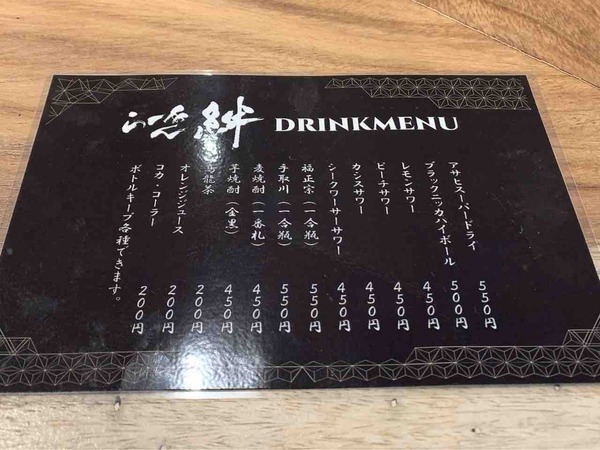 らーめん 絆 DRINKMENU
アサヒスーパードライ 550円
ブラックニッカハイボール 500円
レモンサワー 450円
ピーチサワー 450円
カシスサワー 450円
シークワーサーサワー 450円
福正宗(一合瓶) 550円
手取川(一合瓶) 550円
麦焼酎(一番札) 450円
芋焼酎(金黒) 450円
烏龍茶 200円
オレンジジュース 200円
コカ・コーラー 200円
ボトルキープ各種できます。